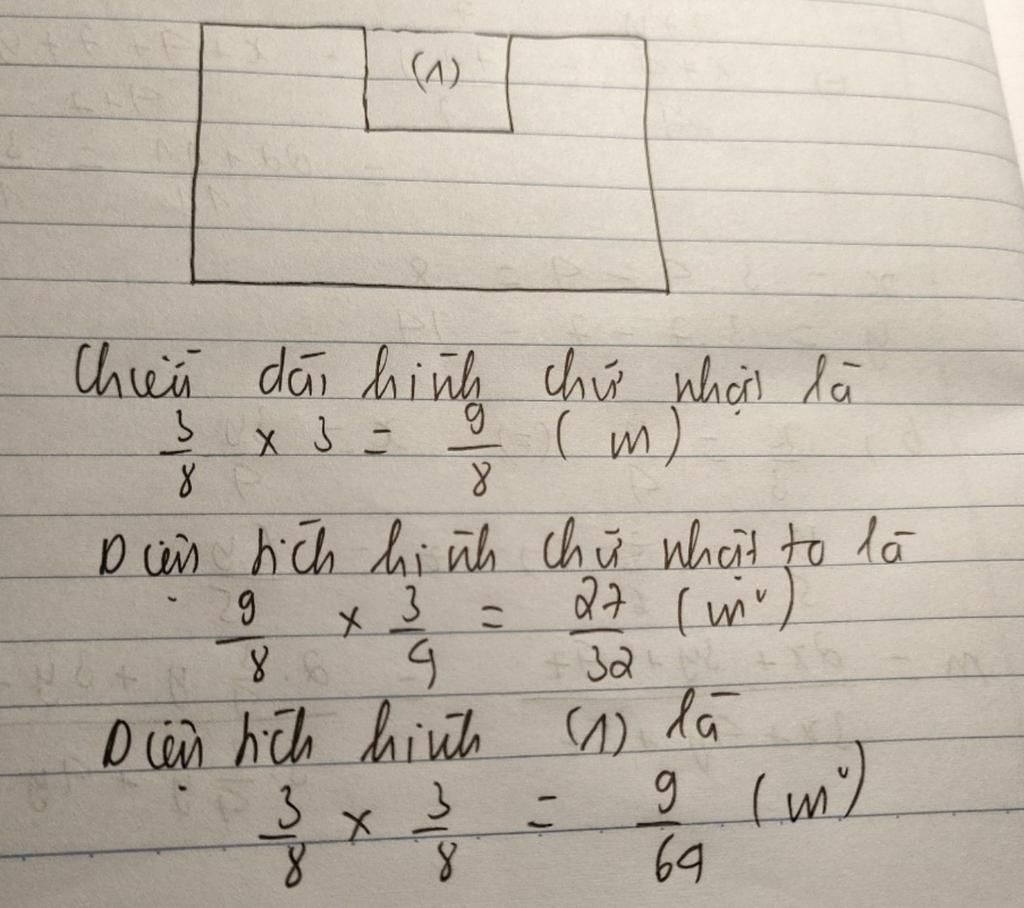 (1)
Chiều dài hình chữ nhật là
3/8 × 3 = 9/8 (m)
Diện tích hình chữ nhật to là
9/8 × 3/4 = 27/32 (m²)
Diện tích hình (1) là
3/8 × 3/8 = 9/64 (m²)